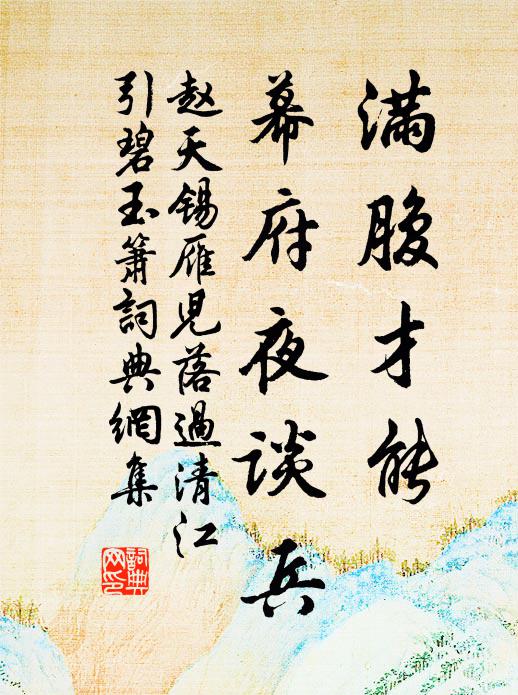 满腹才能
幕府夜谈兵
赵天锡雁儿落過清江
引碧玉箫詞典網集
詞典
网印